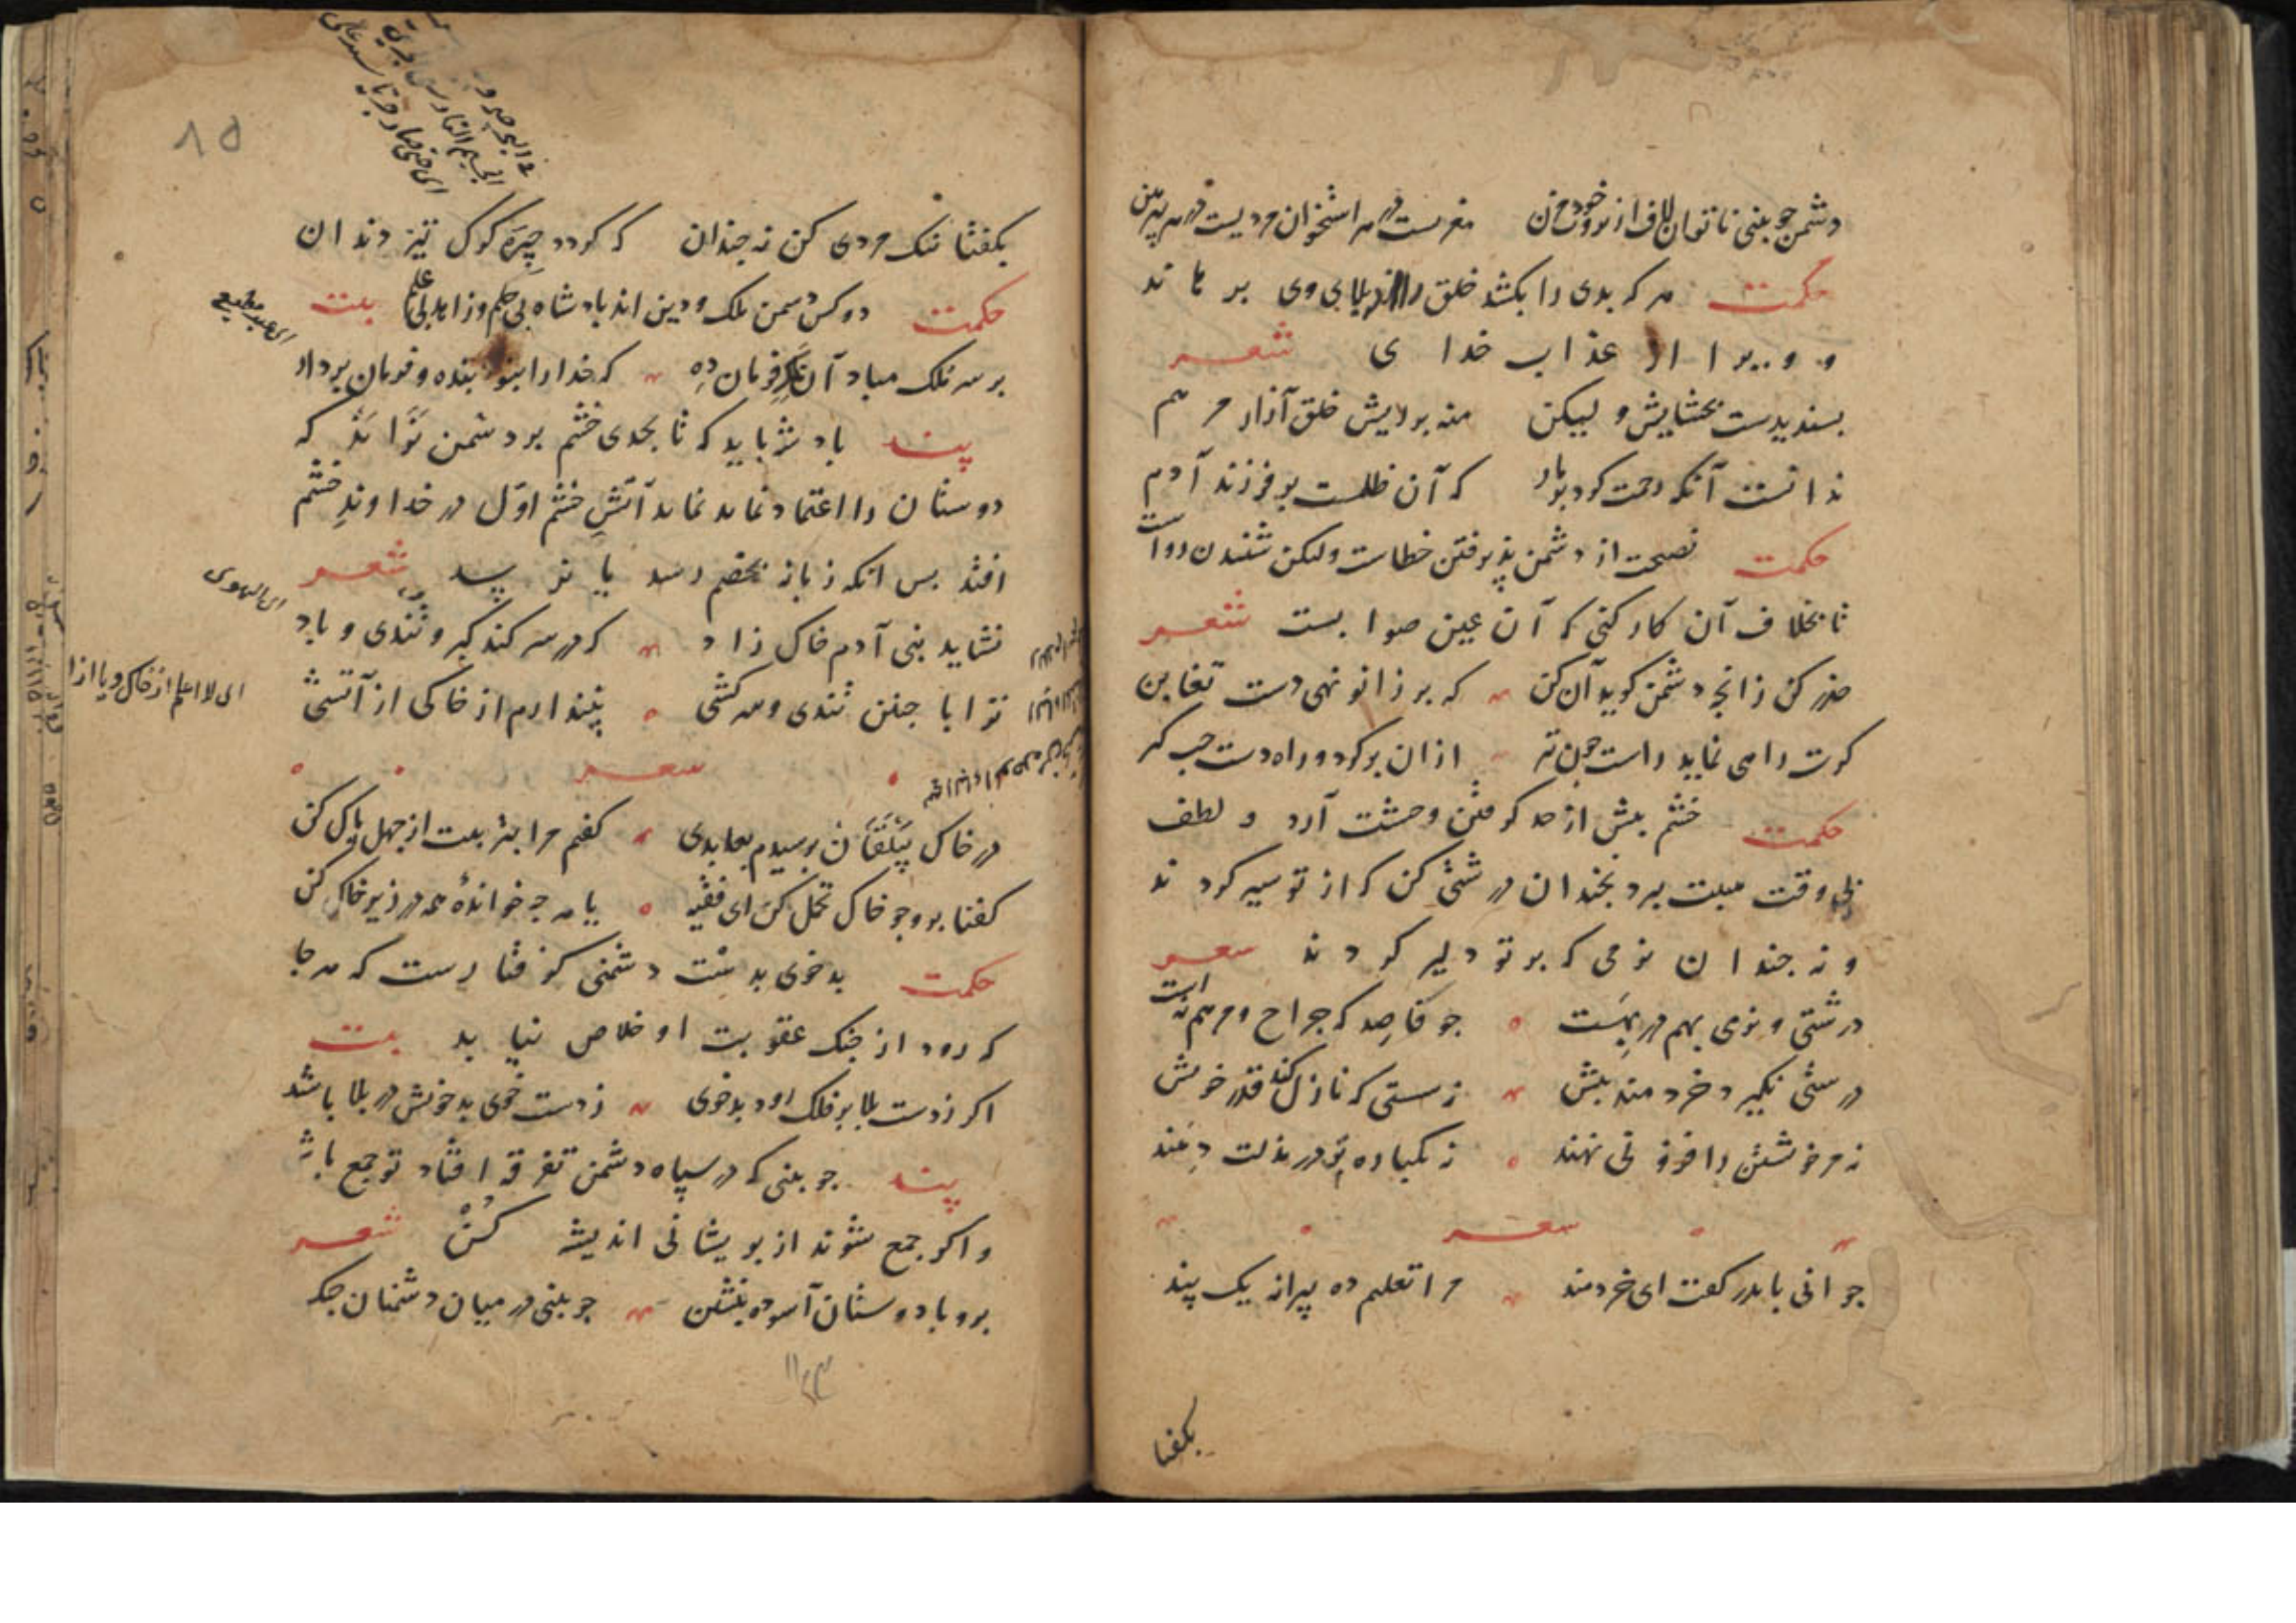 دشمن چو بینی ناتوان لاف از بروت خود مزن مغزیست در هر استخوان مردیست در هر پیرهن
حکمت هر که بدی را بکشد خلق را از بلای وی برهاند
و ویرا از عذاب خدای شعر
پسندیدست بخشایش ولیکن منه بر ریش خلق آزار مرهم
ندانست آنکه رحمت کرد بر مار که آن ظلمست بر فرزند آدم
حکمت نصیحت از دشمن پذیرفتن خطاست ولیکن شنیدن رواست
تا بخلاف آن کار کنی که آن عین صوابست شعر
حذر کن زانچه دشمن گوید آن کن که بر زانو نهی دست تغابن
کرت راهی نماید راست چون تیر ازان برگرد و راه دست چپ گیر
حکمت خشم بیش از حد گرفتن وحشت آرد و لطف
بی وقت هیبت ببرد نچندان درشتی کن که از تو سیر گردند
و نه چندان نرمی که بر تو دلیر گردند شعر
درشتی و نرمی بهم در بهست چو فاصد که جراح و مرهم نه است
درشتی نگیرد خردمند پیش نه سستی که نازل کند قدر خویش
نه مر خویشتن را فزونی نهند نه یکباره تن در مذلت دهند
شعر
جوانی با پدر گفت ای خردمند مرا تعلیم ده پیرانه یک پند
بکفتا
۸۵
بکفتا نیک مردی کن نه چندان که گردد چیره گرگ تیز دندان
حکمت دو کس دشمن ملک و دین اند پادشاه بی حلم و زاهد بی علم بیت
بر سر ملک مباد آن ملک فرمان ده که خدا را نبود بنده و فرمان بردار
پند پادشه باید که تا بحدی خشم بر دشمن نراند که
دوستان را اعتماد نماند نماند آتش خشم اول در خداوند خشم
افتد پس انکه زبانه بخصم رسد یا نرسد شعر
نشاید بنی آدم خاک زاد که در سر کند کبر و تندی و باد
ترا با چنین تندی و سرکشی نپندارم از خاکی از آتشی
شعر
در خاک بیلقان برسیدم بعابدی گفتم مرا بتربیت از جهل پاک کن
گفتا برو چو خاک تحمل کن ای فقیه یا هر چه خوانده همه در زیر خاک کن
حکمت بدخوی بدست دشمنی گرفتارست که هر جا
که رود از چنک عقوبت او خلاص نیابد بیت
اگر ز دست بلا بر فلک رود بدخوی ز دست خوی بد خویش در بلا باشد
پند چو بینی که در سپاه دشمن تفرقه افتاد تو جمع باش
و اگر جمع شوند از پریشانی اندیشه کن شعر
برو با دوستان آسوده بنشین چو بینی در میان دشمنان جنگ
ای الهوی